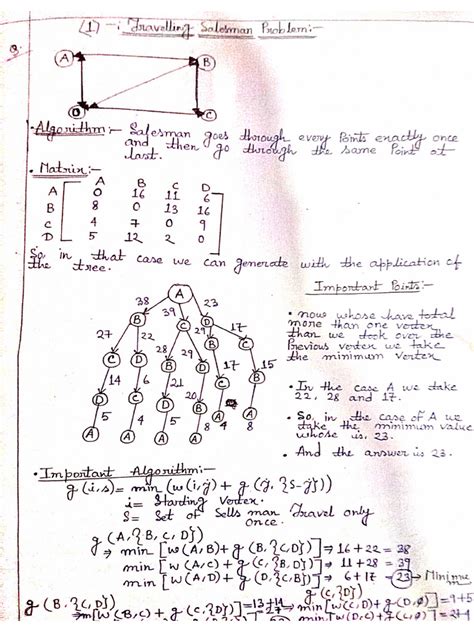 (1) -: Travelling Salesman Problem:-
Q.
A B
D C
• Algorithm:- Salesman goes through every Points exactly once
and then go through the same Point at
last.
• Matrix:-
A B C D
A 0 16 11 6
B 8 0 13 16
C 4 7 0 9
D 5 12 2 0
So, in that case we can generate with the application of
the tree.
Important Points:-
• now whose have total
more than one vertex
than we took over the
Previous vertex we take
the minimum vertex
• In the case A we take
22, 28 and 17.
• So, in the case of A we
take the minimum value
whose is, 23.
• And the answer is 23.
A
38 39 23
B C D
27 22 28 29 29 17
C D B D B C
14 6 21 20 17 15
D C D B C B
5 4 5 8 4 8
A A A A A A
• Important Algorithm:-
g(i,s) = min (w(i,j) + g(j, {S-j}))
i = Starting Vertex.
S = Set of Sells man Travel only
once.
g(A,{B,C,D})
⇒ min [w(A,B) + g(B,{C,D})] ⇒ 16 + 22 = 38
min [w(A,C) + g(C,{B,D})] ⇒ 11 + 28 = 39
min [w(A,D) + g(D,{C,B})] ⇒ 6 + 17 = 23 → Minimum
g(B,{C,D}) g(C,{D})
⇒ min [w(B,C) + g(C,{D})] = 13+14 = 27 ⇒ min [w(C,D) + g(D,ø)] = 9+5